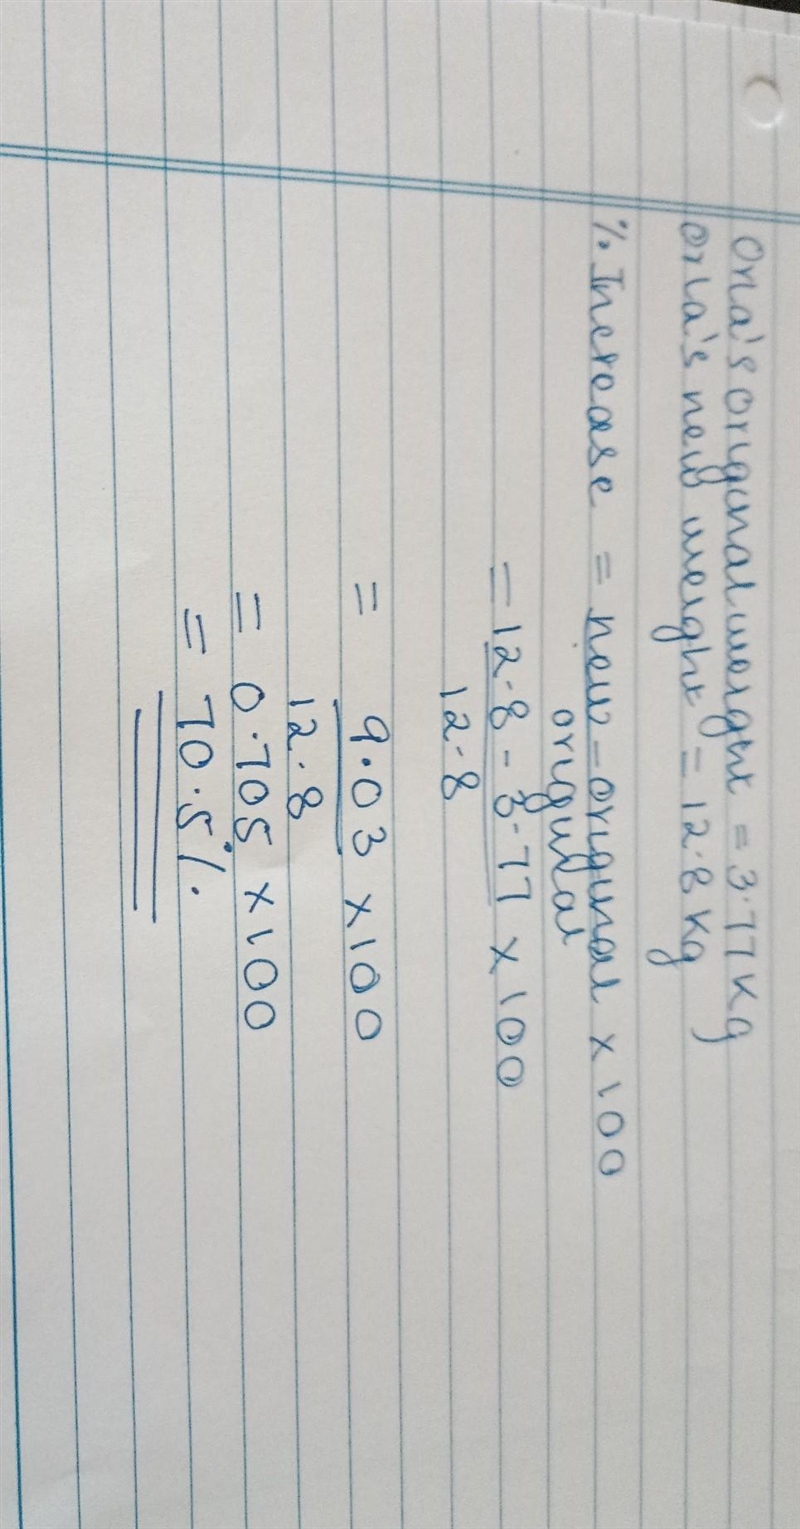 Orla's original weight = 3.77 Kg
Orla's new weight = 12.8 Kg
% Increase = new - original x 100
original
= 12.8 - 3.77 x 100
12.8
= 9.03 x 100
12.8
= 0.705 x 100
= 70.5%